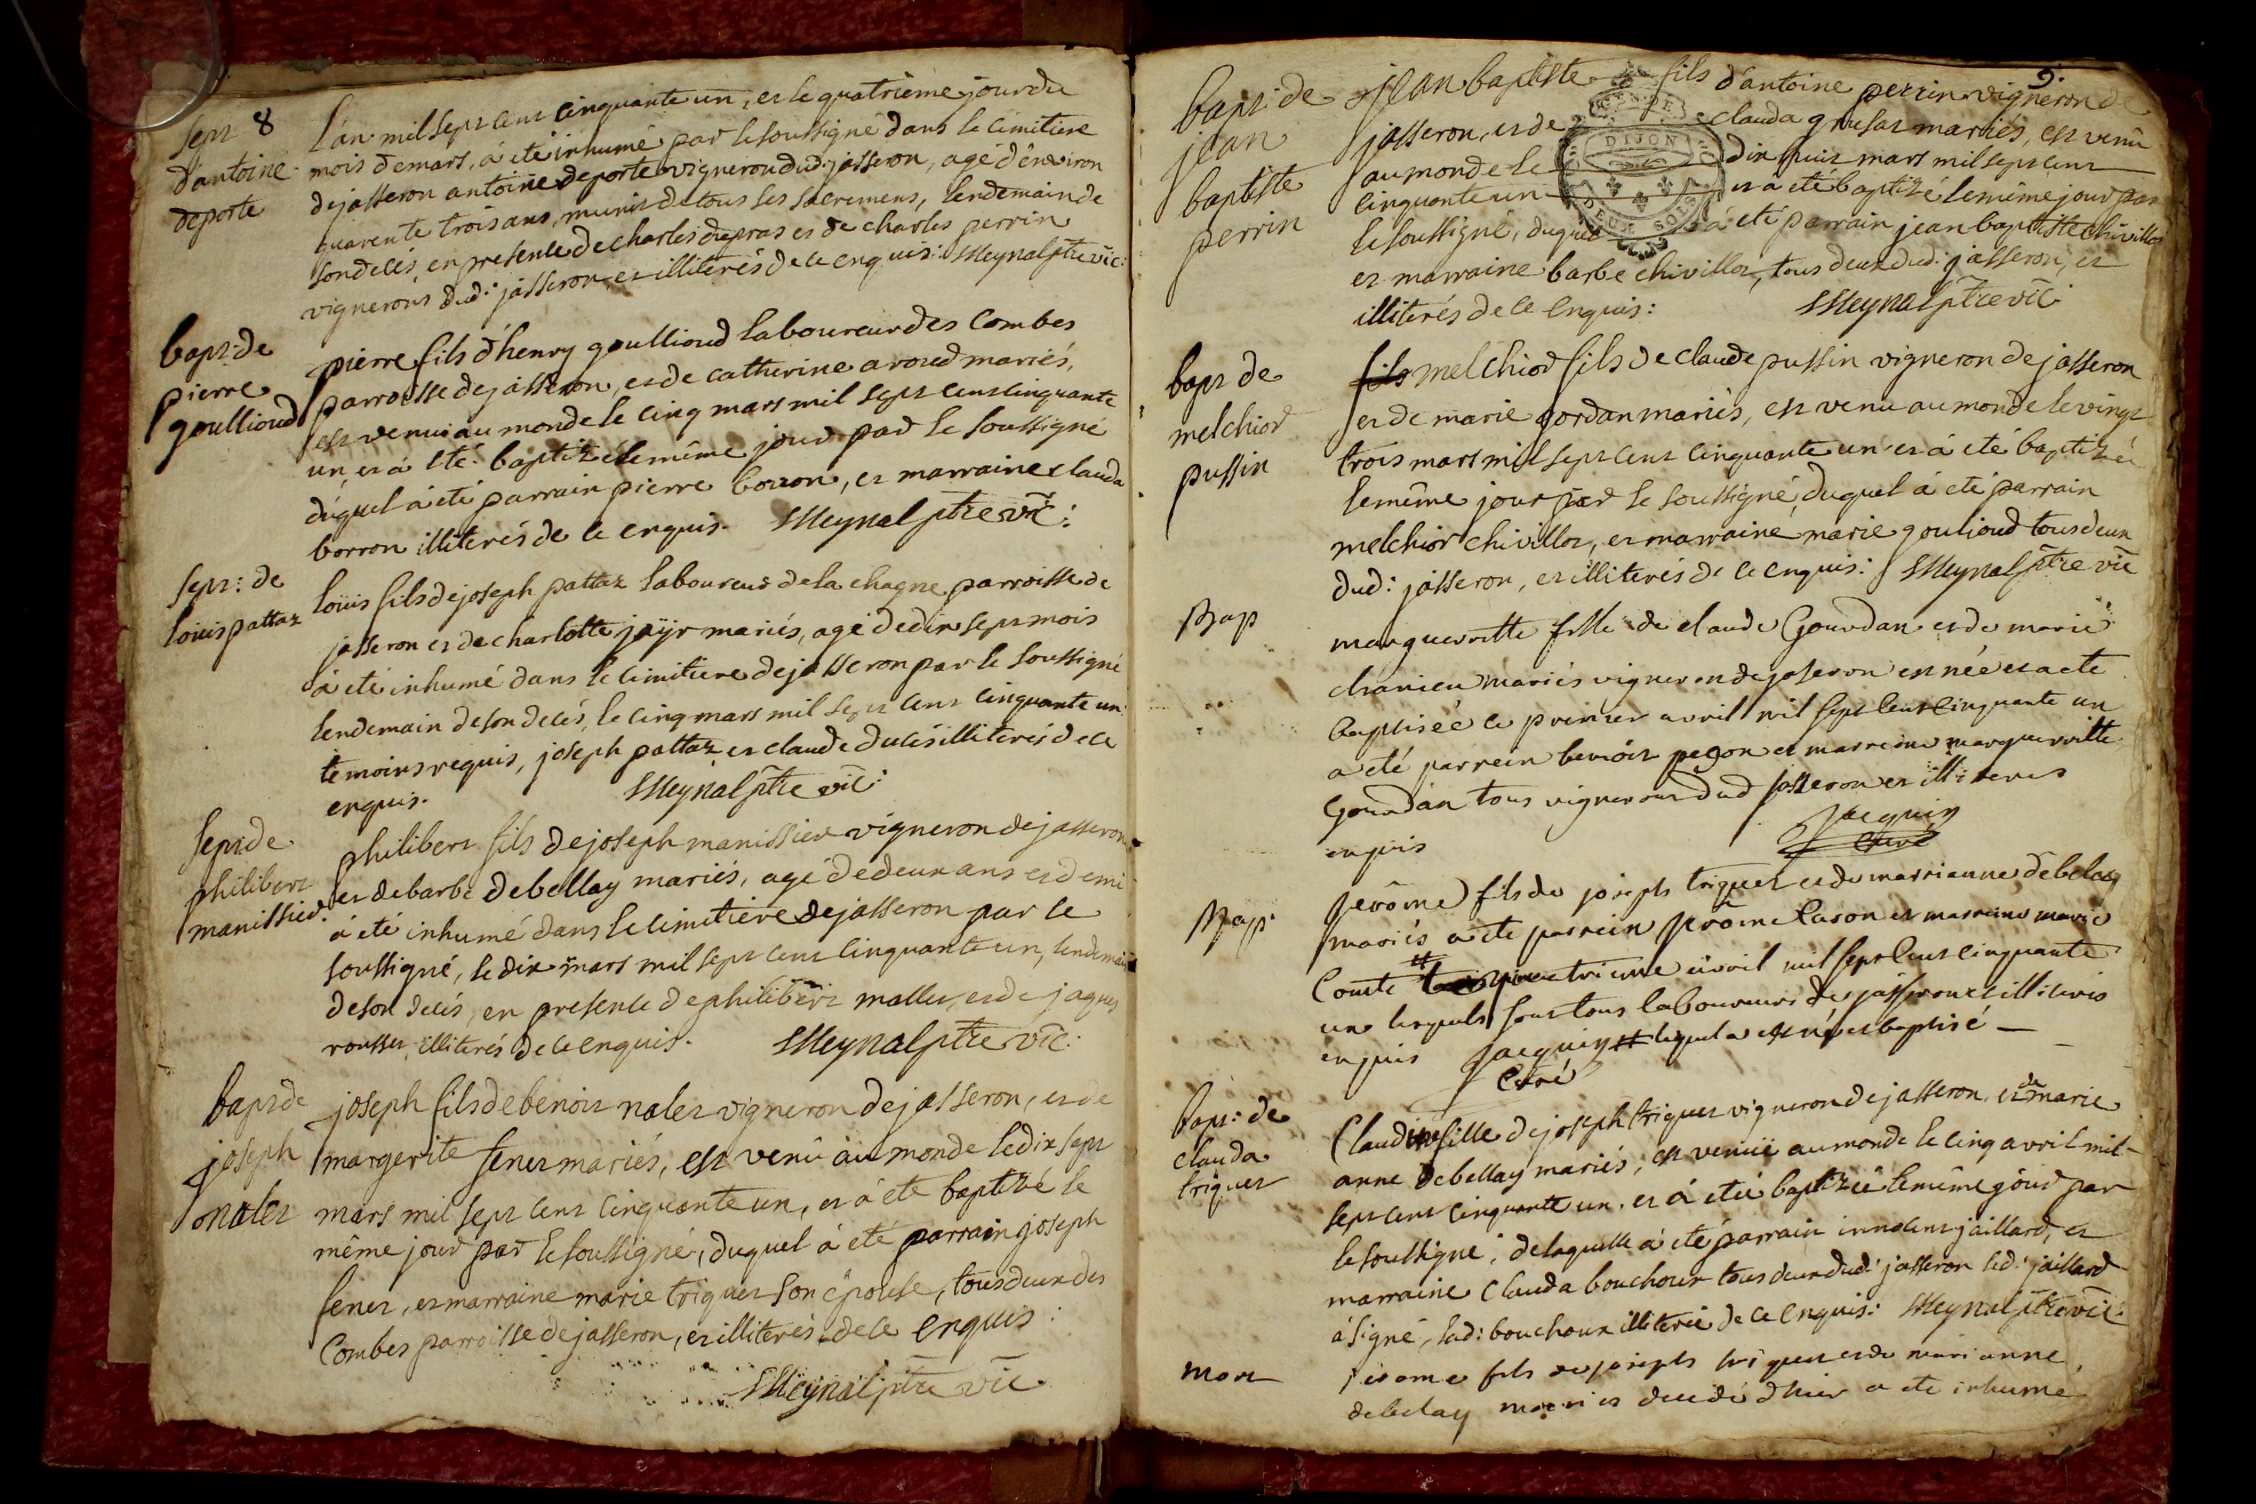 sept 8
d'antoine
deporte
L'an mil sept cent cinquante un, et le quatrieme jour du
mois de mars, á eté inhumé par le soussigné dans le cimitiere
de jasseron antoine deporte vigneron dud: jasseron, agé d'environ
quarente trois ans, munis de tous ses sacremens, lendemain de
son decés, en presence de charles dupras et de charles perrin
vignerons dud: jasseron et illiterés de ce enquis: Meynal ptre vic:
bapt: de
pierre
goullioud
pierre fils d'henry goullioud laboureur des Combes
parroisse de jasseron, et de catherine avoud mariés,
est venu au monde le cinq mars mil sept cent cinquante
un, et á eté baptizé le même jour par le soussigné
duquel á eté parrain pierre borron, et marraine clauda
borron illiterés de ce enquis. Meynal ptre vic:
sept: de
louis pattaz
louis fils de joseph pattaz laboureur de la chagne parroisse de
jasseron et de charlotte jaÿr mariés, agé de dix sept mois
á eté inhumé dans le cimitiere de jasseron par le soussigné
lendemain de son decés, le cinq mars mil sept cent cinquante un
temoins requis, joseph pattaz et claude dulés illiterés de ce
enquis. Meynal ptre vic:
sept de
philibert
manissier.
philibert fils de joseph manissier vigneron de jasseron
et de barbe debellay mariés, agé de deux ans et demi
á eté inhumé dans le cimitiere de jasseron par le
soussigné, le dix mars mil sept cent cinquante un, lendemain
de son decés, en presence de philibert mallet, et de jaques
rousset illiterés de ce enquis. Meynal ptre vic:
bapt de
joseph
nalet
joseph fils de benoit nalet vigneron de jasseron, et de
margerite fenet mariés, est venû au monde le dix sept
mars mil sept cent cinquante un, et á eté baptizé le
même jour par le soussigné, duquel á eté parrain joseph
fenet, et marraine marie triquet son épouse, tous deux des
Combes parroisse de jasseron, et illiterés de ce enquis:
Meynal ptre vic
9.
DIJON
DEUX SOLS
bapt: de
jean
baptiste
perrin
jean baptiste fils d'antoine perrin vigneron de
jasseron, et de clauda grusat mariés, est venû
au monde le dix huit mars mil sept cent
cinquante un et á eté baptizé le même jour par
le soussigné, duquel á eté parrain jean baptiste chivillot
et marraine barbe chivillot, tous deux dud: jasseron, et
illiterés de ce enquis: Meynal ptre vic
bapt de
melchior
pussin
fils melchior fils de claude pussin vigneron de jasseron
et de marie gordan mariés, est venu au monde le vingt
trois mars mil sept cent cinquante un et á eté baptizé
le même jour par le soussigné, duquel á eté parrain
melchior chivillot, et marraine marie goulioud tous deux
dud: jasseron, et illiterés de ce enquis: Meynal ptre vic
Bap
margueritte fille de claude Gourdan et de marie
mariés vigneron de jaseron est née et a ete
baptisée le premier avril mil sept cent cinquante un
a eté parrein benoit pegon et marreine marguerritte
Gourdan tous vignerons dud jasseron et illiteres
enquis Jacquin
Curé
Bap:
jerôme fils de joseph triquet et de marrianne debelay
mariés a ete parrein jerôme Cason et marreine marie
Comte quatrieme avril mil sept cent cinquante
un lesquels sont tous laboureurs de jasseron et illiteres
enquis Jacquin lequel a est né et baptisé
Curé
bapt: de
clauda
triquet
Claudine fille de joseph triquet vigneron de jasseron, et de marie
anne debellay mariés, est venüe au monde le cinq avril mil
sept cent cinquante un. et á eté baptizée le même jour par
le soussigné, de laquelle á eté parrain innocent jaillard, et
marraine Clauda bouchoux tous deux dud: jasseron led: jaillard
á signé, lad: bouchoux illiterée de ce enquis: Meynal ptre vic:
mort
jerome fils de joseph triquet et de marianne
debelay mariés decedé d'hier a ete inhumé